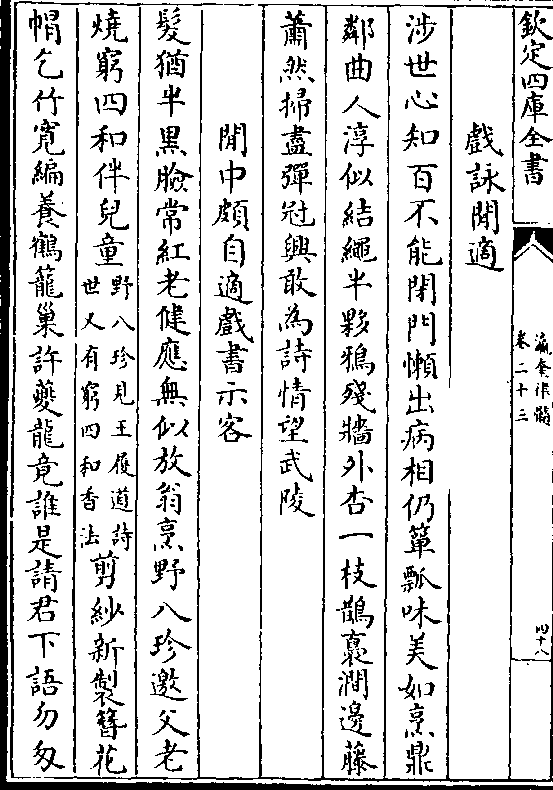 欽定四庫全書
瀛奎律髓
卷二十三
四十八
戲詠閒適
涉世心知百不能閉門懶出病相仍簞瓢味美如烹鼎
鄰曲人淳似結繩半夥鴉殘牆外杏一枝鵲裊澗邊藤
蕭然掃盡彈冠興敢為詩情望武陵
閒中頗自適戲書示客
髮猶半黑臉常紅老健應無似放翁烹野八珍邀父老
燒窮四和伴兒童野八珍見王履道詩世又有窮四和香法剪紗新製簪花
帽乞竹寬編養鶴籠巢許夔龍竟誰是請君下語勿匆